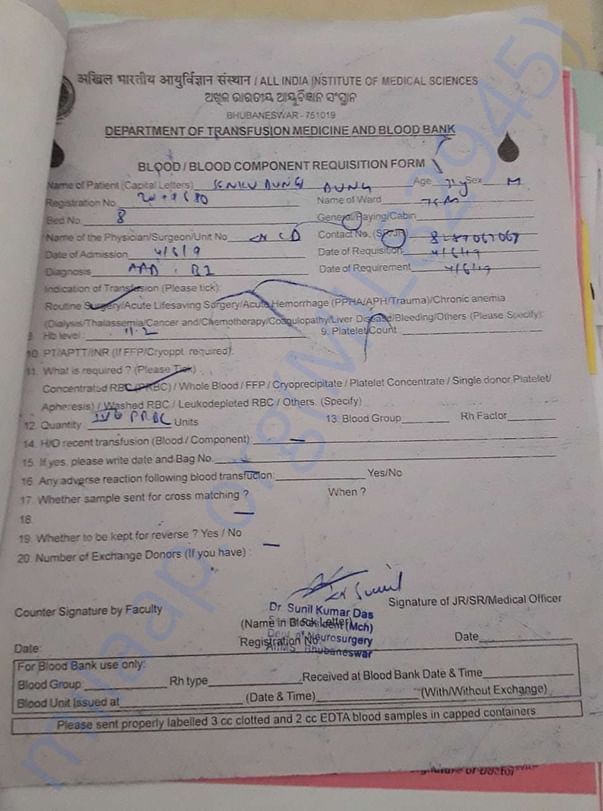 अखिल भारतीय आयुर्विज्ञान संस्थान / ALL INDIA INSTITUTE OF MEDICAL SCIENCES
BHUBANESWAR - 751019
DEPARTMENT OF TRANSFUSION MEDICINE AND BLOOD BANK
BLOOD / BLOOD COMPONENT REQUISITION FORM
Name of Patient (Capital Letters) Age Sex M
Registration No. Name of Ward
Bed No. 8 General/Paying/Cabin
Name of the Physician/Surgeon/Unit No Contact No.
Date of Admission 4/6/19 Date of Requisition 4/6/19
Diagnosis Date of Requirement 4/6/19
Indication of Transfusion (Please tick):
Routine Surgery/Acute Lifesaving Surgery/Acute Hemorrhage (PPHA/APH/Trauma)/Chronic anemia
(Dialysis/Thalassemia/Cancer and/Chemotherapy/Coagulopathy/Liver Disease/Bleeding/Others (Please Specify):
Hb level: 11.2 9. Platelet Count
10. PT/APTT/INR (If FFP/Cryoppt. required):
11. What is required ? (Please Tick)
Concentrated RBC (PRBC) / Whole Blood / FFP / Cryoprecipitate / Platelet Concentrate / Single donor Platelet/
Apheresis) / Washed RBC / Leukodepleted RBC / Others. (Specify)
12. Quantity PRBC Units 13. Blood Group Rh Factor
14. H/O recent transfusion (Blood / Component):
15. If yes, please write date and Bag No.
16. Any adverse reaction following blood transfucion: Yes/No
17. Whether sample sent for cross matching ? When ?
18.
19. Whether to be kept for reverse ? Yes / No
20. Number of Exchange Donors (If you have) :
Sunil
Counter Signature by Faculty Signature of JR/SR/Medical Officer
Dr Sunil Kumar Das
(Name in Block Letter) (Mch)
Registration No. Neurosurgery
AIIMS, Bhubaneswar
Date: Date
For Blood Bank use only:
Blood Group: Rh type Received at Blood Bank Date & Time
Blood Unit Issued at (Date & Time) (With/Without Exchange)
Please sent properly labelled 3 cc clotted and 2 cc EDTA blood samples in capped containers